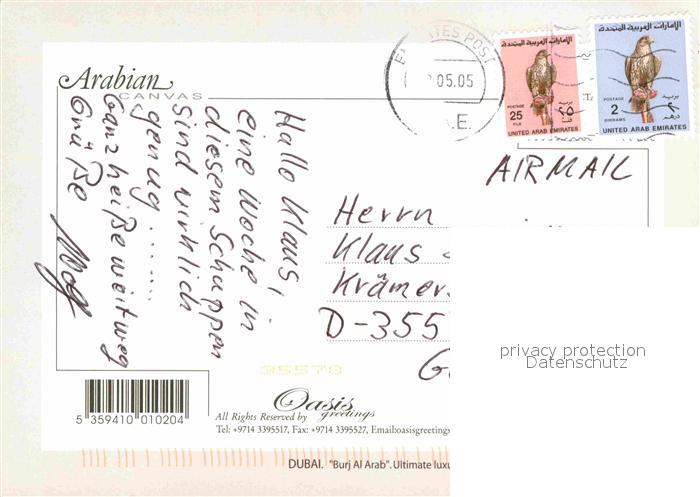 Arabian
CANVAS
Hallo Klaus,
eine Woche in
diesem Schuppen
sind wirklich
genug.......
Ganz heiße weitweg
Grüße
EMIRATES POST
05.05
.E.
الإمارات العربية المتحدة
POSTAGE
بريد
25
٢٥
FILS
فلس
UNITED ARAB EMIRATES
الإمارات العربية المتحدة
POSTAGE
بريد
2
٢
DIRHAMS
درهم
UNITED ARAB EMIRATES
AIRMAIL
Herrn
Klaus
Krämers
D-355
G
privacy protection
Datenschutz
35578
5 359410 010204
All Rights Reserved by Oasis greetings
Tel: +9714 3395517, Fax: +9714 3395527, Email:oasisgreetings
DUBAI. "Burj Al Arab". Ultimate luxu